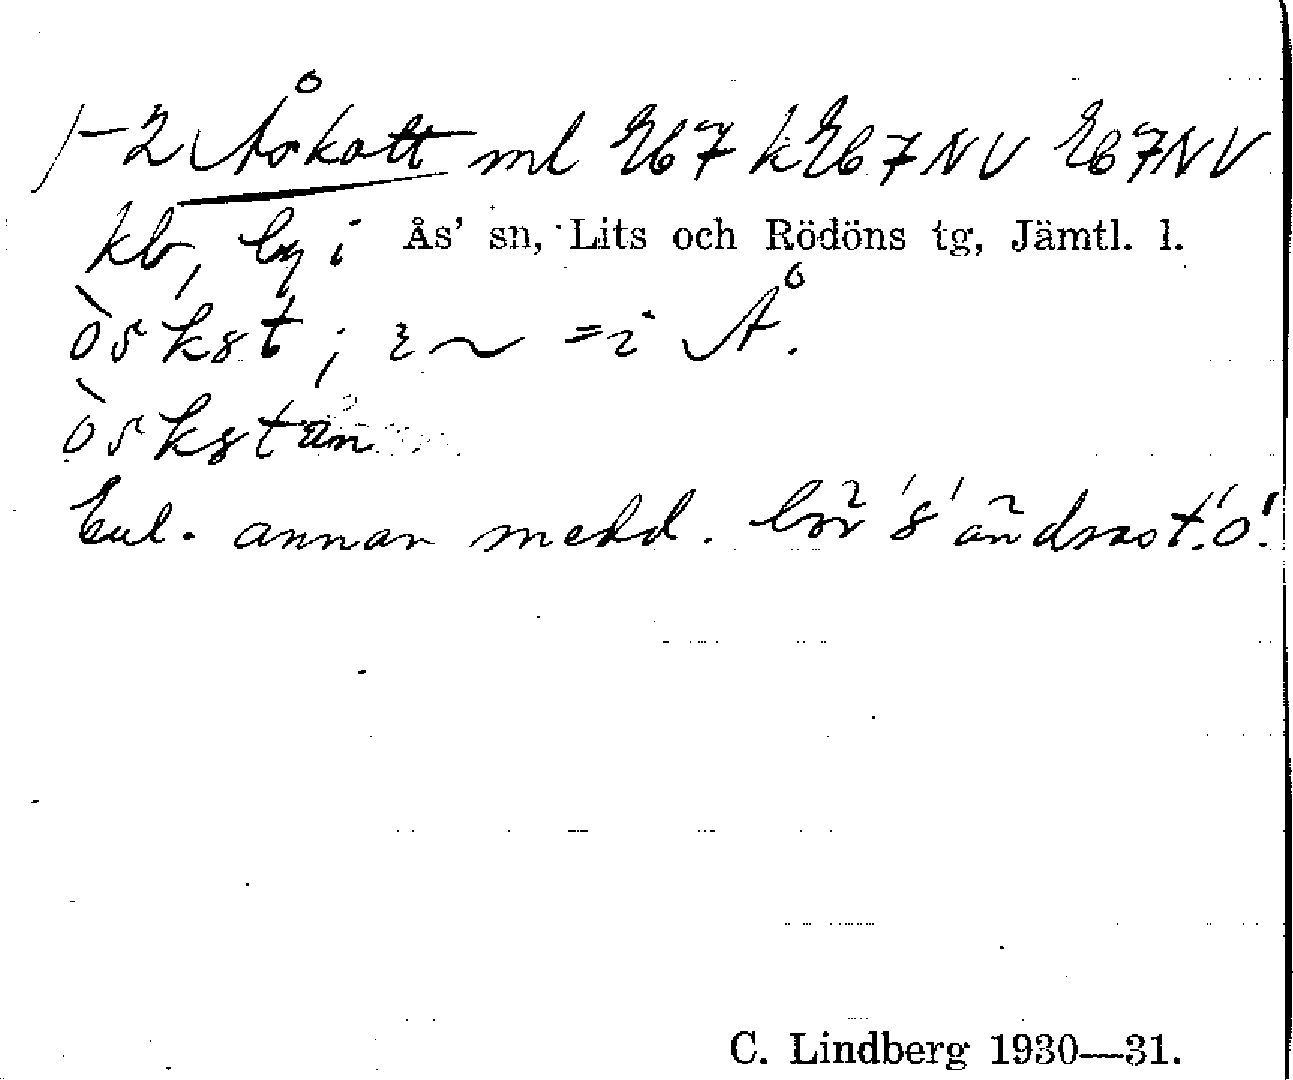 1-2 Åskott ml Eb7 kEb7NV Eb7NV
kb, by i Ås' sn, Lits och Rödöns tg, Jämtl. l.
òskst; ~ = i Å.
òskstan
Enl. annan medd. bör 's' ändras t. 'o'.
C. Lindberg 1930—31.